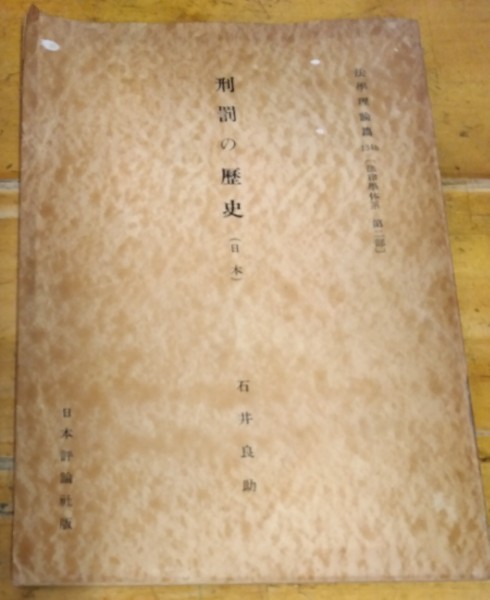 法學理論篇 (法律學体系 第二部)
刑罰の歷史
(日本)
石井良助
日本評論社版